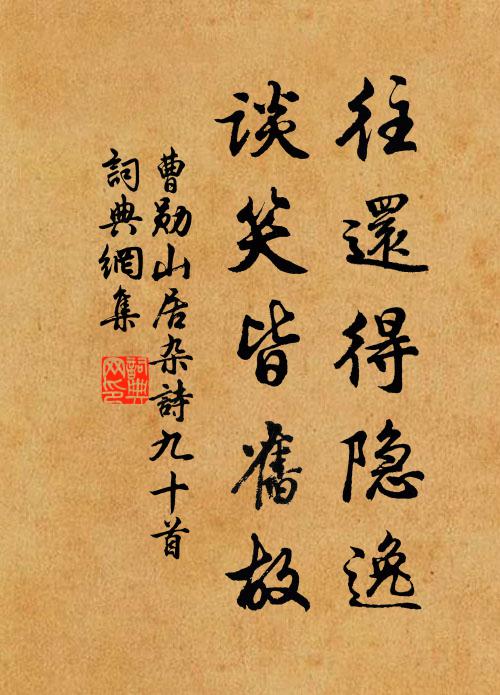 往還得隐逸
谈笑皆舊故
曹勋山居杂詩九十首
詞典網集
詞典网印